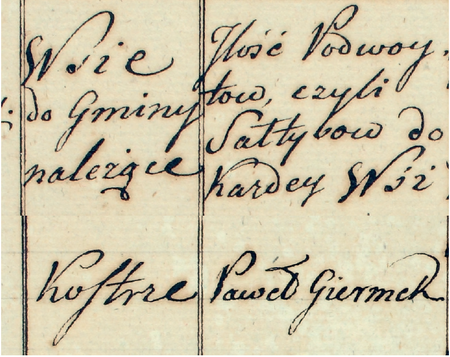 Wsie
do Gminy
należące
Ilość Podwoy-
tow, czyli
Sałtysow do
Kazdey Wsi
Kostrze
Paweł Giermek